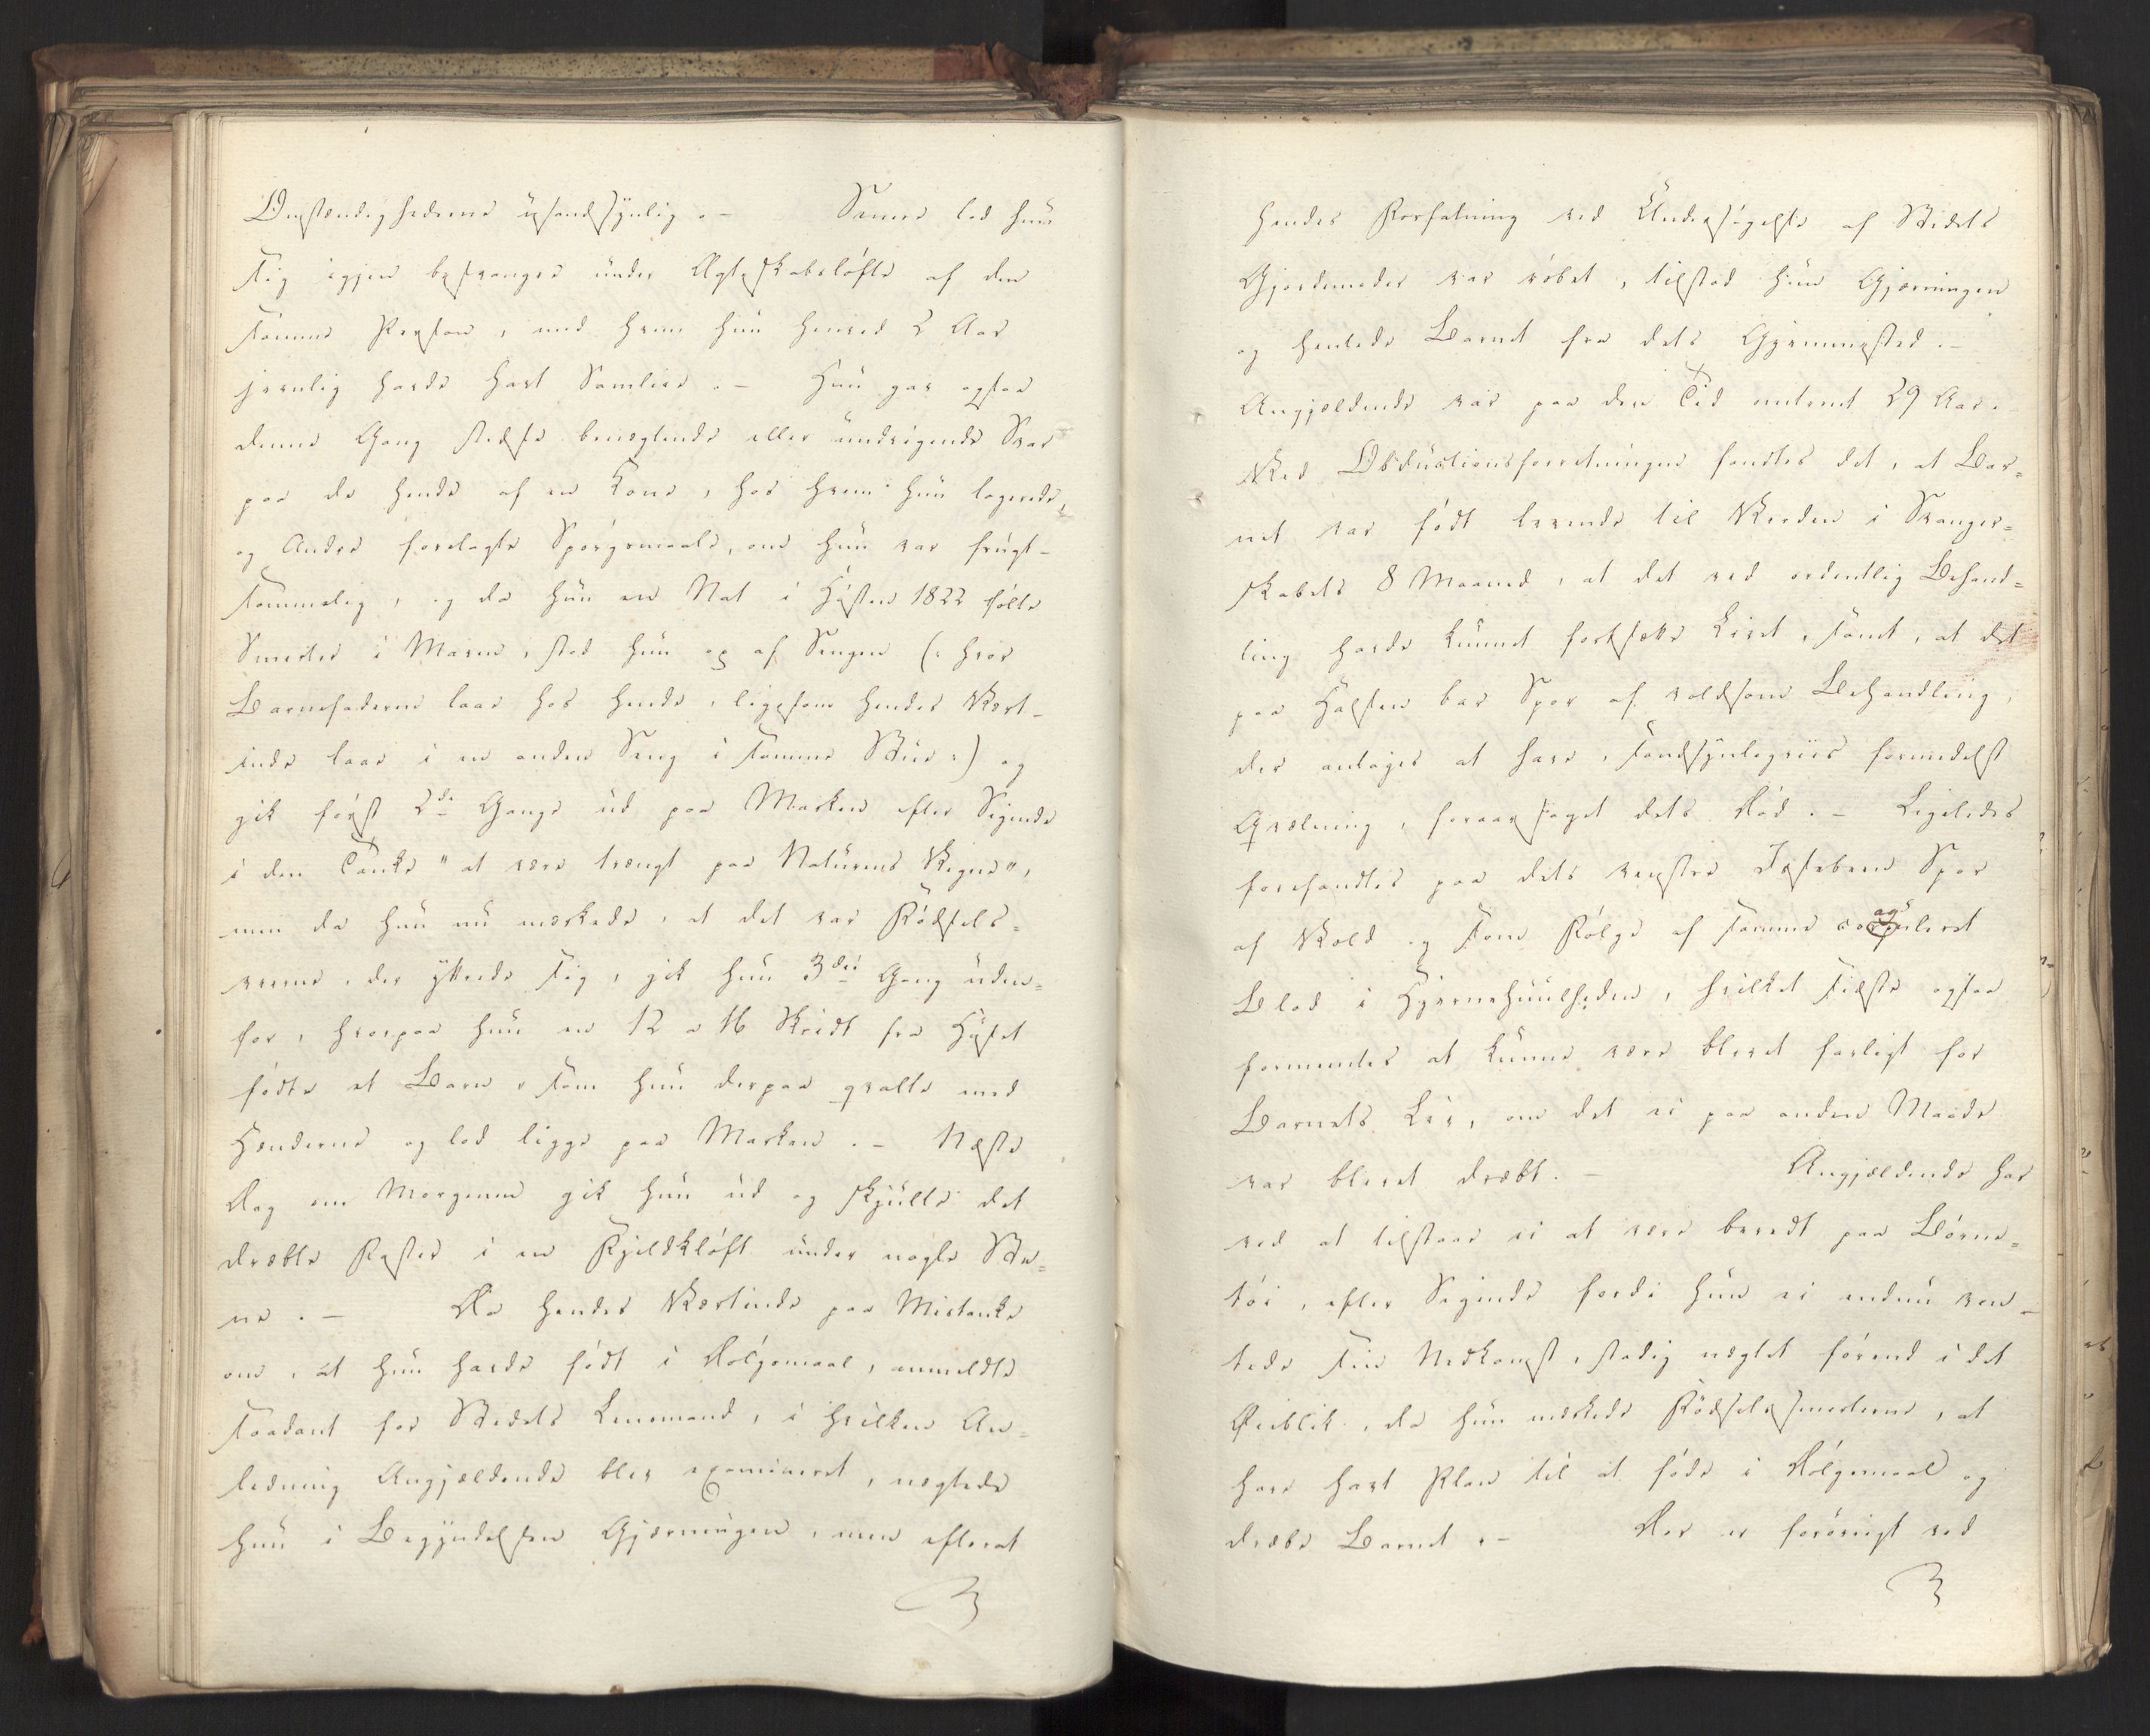 Omstændighederne usandsynlig. – Senere lod hun
sig igjen besvangre under Ægteskabsløfte af den
samme Person, med hvem hun henved 2 Aar
jevnlig havde havt Samleie. – Hun gav ogsaa
denne Gang stedse benægtende eller undvigende Svar
paa de hende af en Kone, hos hvem hun logerede,
og Andre forelagte Spørgsmaale, om hun var frugt-
sommelig, og da hun en Nat i Høsten 1822 følte
Smerter i Maven, stod hun op af Sengen (: hvor
Barnefaderen laae hos hende, ligesom hendes Vert-
inde laae i en anden Seng i samme Stue :) og
gik først 2de Gange ud paa Marken efter Sigende
i den Tanke "at være trængt paa Naturens Vegne",
men da hun nu mærkede, at det var Fødsels=
veerne, der yttrede sig, gik hun 3die Gang uden=
for, hvorpaa hun en 12 a 16 Skridt fra Huset
fødte et Barn, som hun derpaa qvalte med
Hænderne og lod ligge paa Marken. – Næste
Dag om Morgenen gik hun ud og skjulte det
dræbte Foster i en Fjeldkløft under nogle Ste=
ne. – Da hendes Vertinde paa Mistanke
om, at hun havde født i Dølgsmaal, anmeldte
saadant for Stedets Lensmand, i hvilken An=
ledning Angjældende blev examineret, nægtede
hun i Begyndelsen Gjerningen, men efterat
hendes Forfatning ved Undersøgelse af Stedets
Gjordemoder var røbet, tilstod hun Gjerningen
og hentede Barnet fra dets Gjemmested. –
Angjældende var paa den Tid omtrent 29 Aar.
Ved Obductionsforretningen fandtes det, at Bar=
net var født levende til Verden i Svanger=
skabets 8 Maaned, at det ved ordentlig Behand=
ling havde kunnet fortsætte Livet, samt, at det
paa Halsen bar Spor af voldsom Behandling,
der antages at have, sandsynligviis formedelst
Qvælning, foraarsaget dets Død. – Ligeledes
forefandtes paa dets venstre Issebeen Spor
af Vold og som Følge af samme coaguleret
Blod i Hjernehuulheden, hvilket sidste ogsaa
formeentes at kunne være blevet farligt for
Barnets Liv, om det ei paa anden Maade
var blevet dræbt. – Angjældende har
ved at tilstaae ei at være beredt paa Børne=
tøi, efter Sigende fordi hun ei endnu ven-
tede sin Nedkomst, stadig nægtet førend i det
Øieblik, da hun mærkede Fødselssmerterne, at
have havt Plan til at føde i Dølgsmaal og
dræbe Barnet. – Der er forøvrigt ved